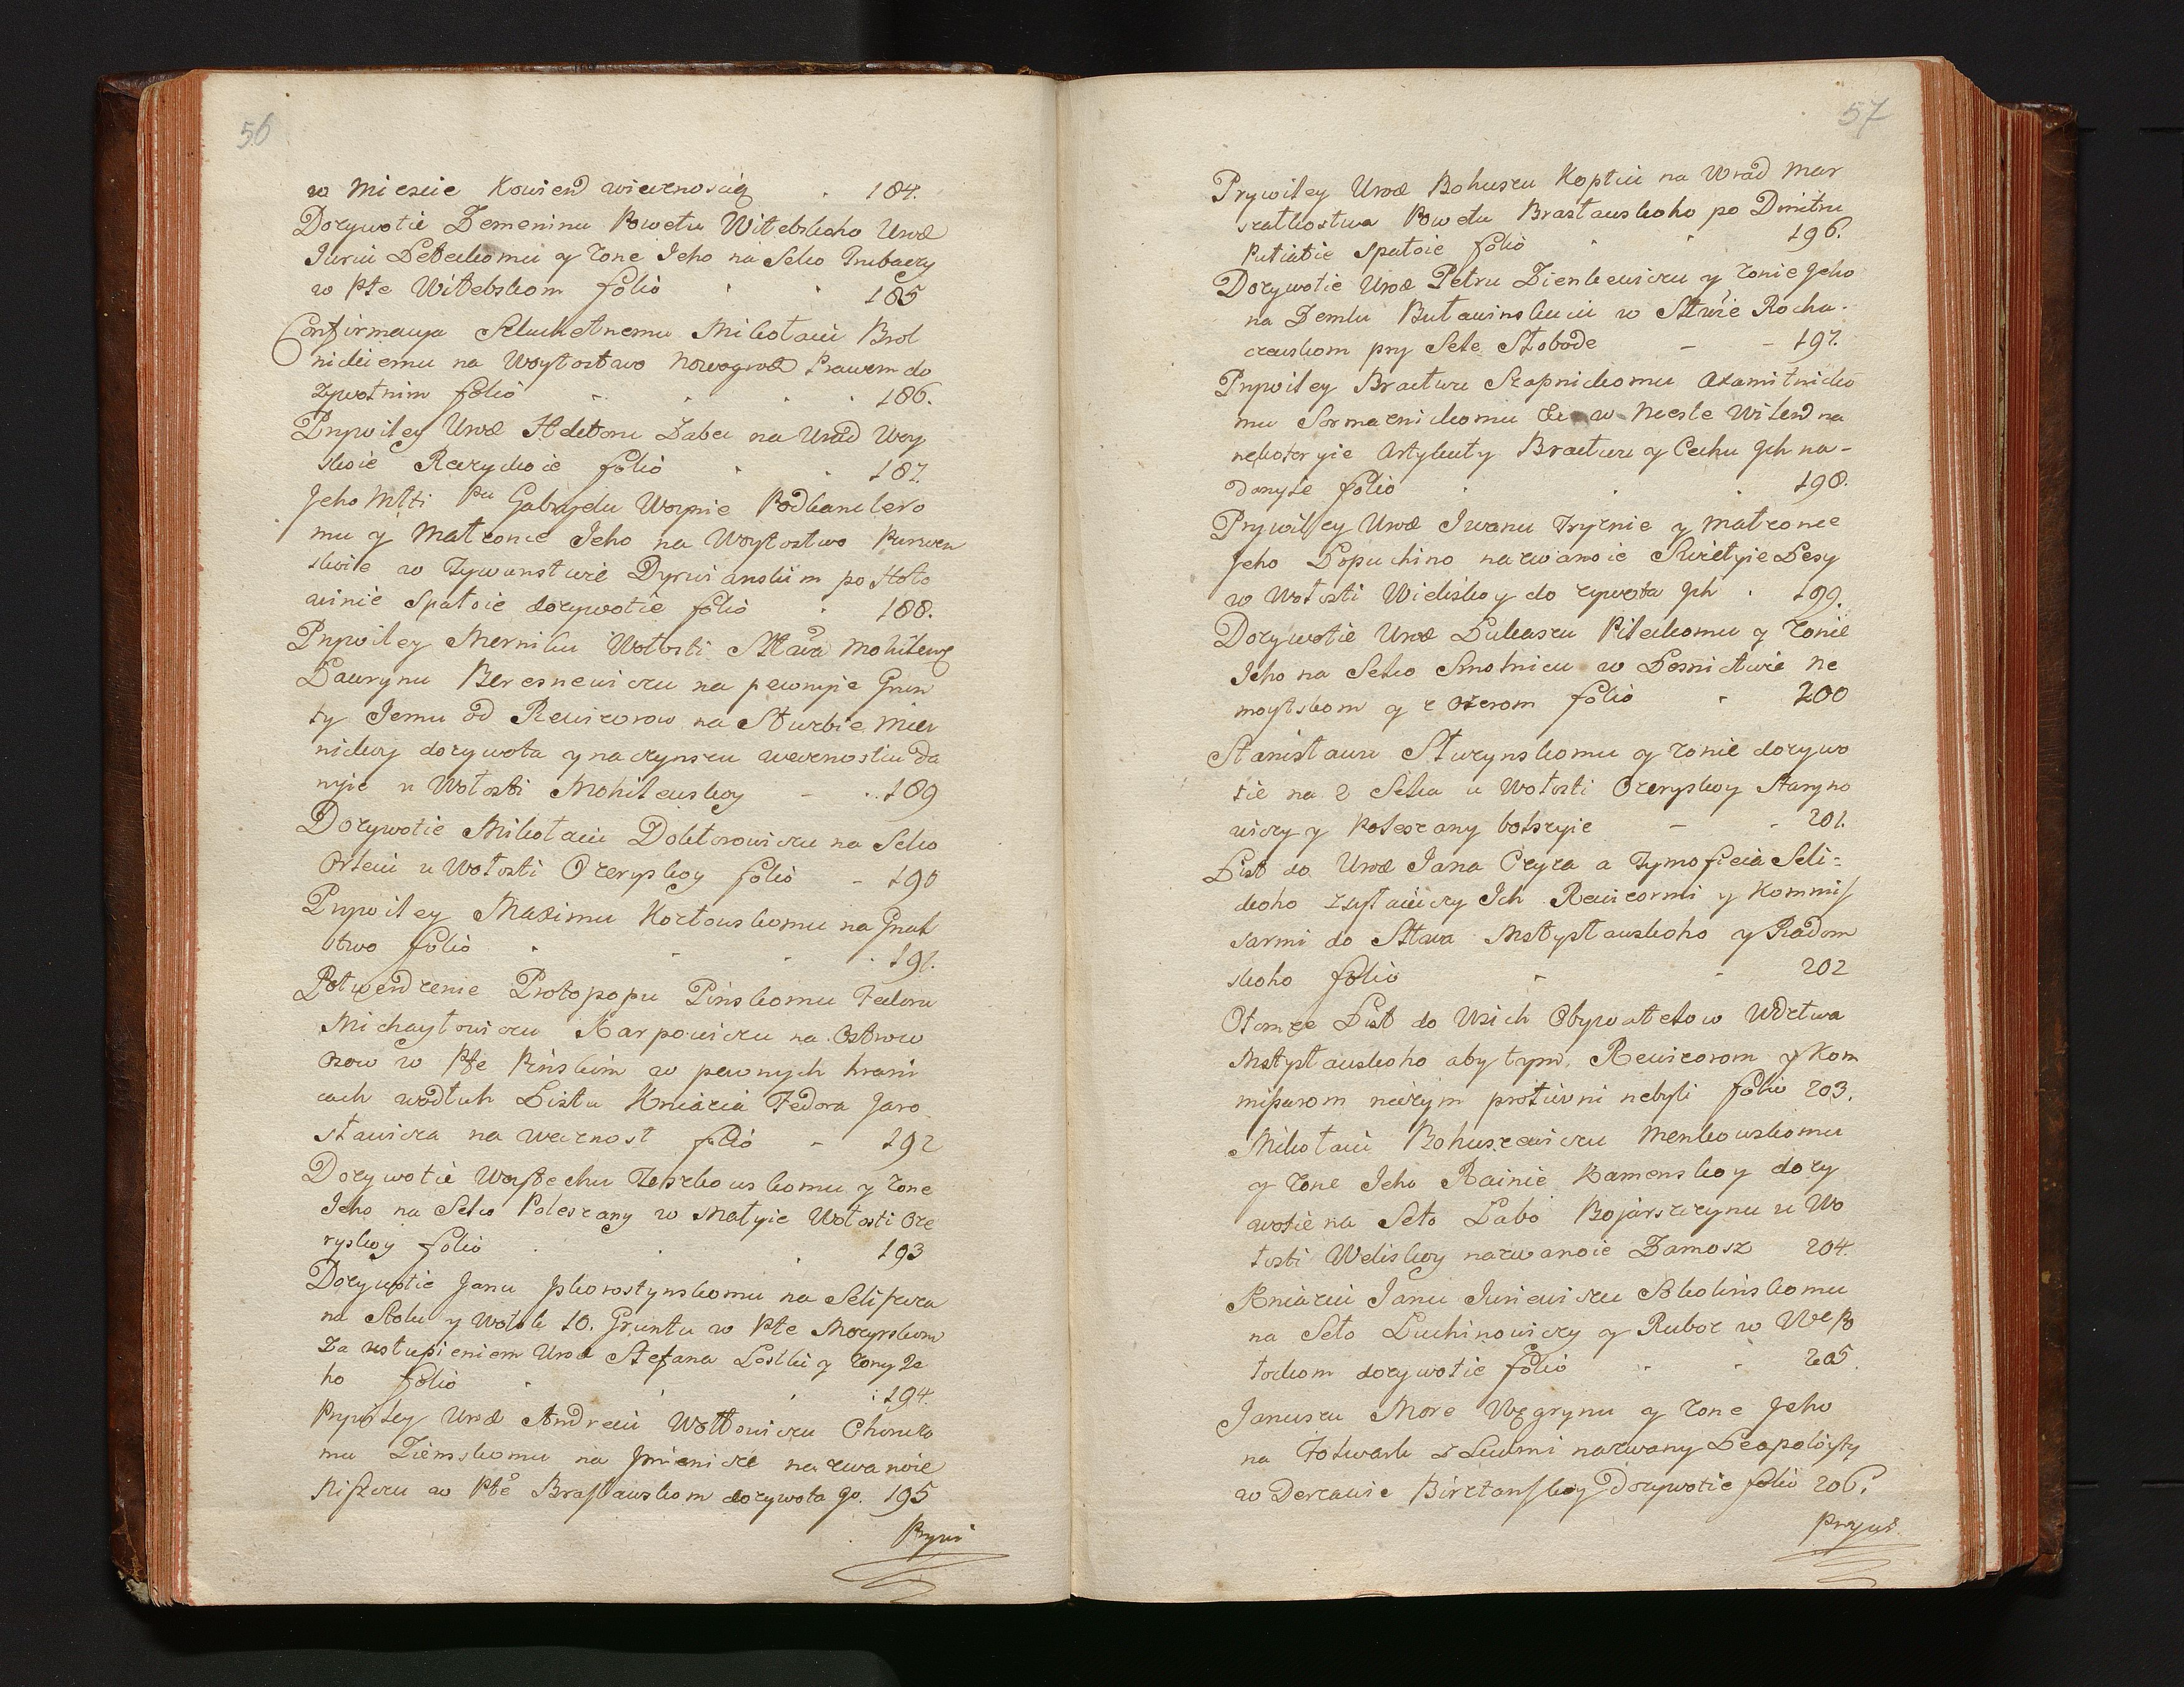 56
w Miescie Kowien wiecznoscią 184.
Dozywotie Zemeninu Powetu Witebskoho Urod
Juriu Peteckomu y zone Jeho na Selco Trubaczy
w Pte Witebskom folio 185
Confirmacya Szlachetnemu Mikołaiu Brol
nickiemu na Woytostwo Nowogrod Prawem do
zywotnim folio 186.
Prywiley Urod Hektoru Zabei na Urad Woy
skoie Reczyckoie folio 187.
Jeho Mlti Pu Gabryelu Woynie Podkanclero
mu y Matzonce Jeho na Woytostwo Kurszen
skoie w Tywunstwie Dyrwianskim po Hoło
winie spałoie dozywotie folio 188.
Prywiley Merniku Wołosti Sttwa Mohilewo
Ławrynu Beresnewiczu na pewnyie Grun
ty Jemu od Rewizorow na Służbie Mier
nickoy dozywota y na czynszu wecznostiu da
nyie u Wołosti Mohilewskoy 189
Dozywotie Mikołaiu Doktorowiczu na Selco
Orleni u Wołosti Ozeryskoy folio 190
Prywiley Maximu Kozłowskomu na Jgnat
two folio 191.
Potwerdzenie Protopopu Pinskomu Fedoru
Michayłowiczu Karpowiczu na Ostrow
Ozow w Pte Pinskim w pewnych hrani
cach wodłuh Listu Kniazia Fedora Jaro
sławicza na wecznost folio 192
Dozywotie Woytechu Zeszkowskomu y zone
Jeho na Selco Polesczany w Małyie Wołosti Oze
ryskoy folio 193
Dozywotie Janu Jskorostynskomu na Seliszcza
na Stoku y Wołok 10. Gruntu w Pte Mozyrskom
za ustupieniem Urod Stefana Leski y zony Je
ho folio 194.
Prywiley Urod Andreiu Wołłowiczu Chorużo
mu Ziemskomu na Jmienicze nazwanoie
Kiszcu w Pte Brasławskom dozywota Jo. 195
Prywi
57
Prywiley Urod Bohuszu Koptiu na Urad Mar
szałkostwa Powetu Brasławskoho po Dmitru
Putiatie spałoie folio 196.
Dozywotie Urod Petru Zienkewiczu y zonie Jeho
na Zemlu Butawinskuiu w Sttwie Rocha-
czewskom pry Sele Słobode 197.
Prywiley Bractwu Szapnickomu Axamitnicko
mu Sarmacnickomu &c w Mescie Wilen na
nekotoryie Artykuły Bractwu y Cechu Jch na-
danyie folio 198.
Prywiley Urod Jwanu Tryznie y Matzonce
Jeho Łopuchino nazwanoie Swietyie Lesy
w Wołosti Wieliskoy do zywota Jch 199.
Dozywotie Urod Lukaszu Piteckomu y zonie
Jeho na Selco Smolnicu w Lesnictwie Ne
monoytskom y z Ozerom folio 200
Stanisławu Sturynskomu y zonie dozywo
tie na 2 Selca u Wołosti Ozeryskoy Staryno
wiczy y Polesczany bolszyie 201.
List do Urod Jana Czyza a Tymofieia Seli=
ckoho zsyłaiuczy Jch Rewizormi y Kommis
sarmi do Sttwa Mstysławskoho y Radom
skoho folio 202
O tomze List do Wsich Obywatelow Wdztwa
Mstysławskoho aby tym Rewizorom y Kom
missarom niwczym protiwni nebyli folio 203.
Mikołaiu Bohuszewiczu Menkowskomu
y zone Jeho Rainie Kamenskoy dozy
wotie na Seło Łabo Bojarszczynu u Wo
łosti Weliskoy nazwanoie Zamosz 204.
Kniaziu Janu Jurewiczu Sokolinskomu
na Seło Luchinowiczy y Rubez w Wdz Po
łockom dozywotie folio 205.
Januszu More Węgrynu y zone Jeho
na Folwark z Ludmi nazwany Leapoloysty
w Derzawie Birztanskoy Dozywotie folio 206.
Prywi